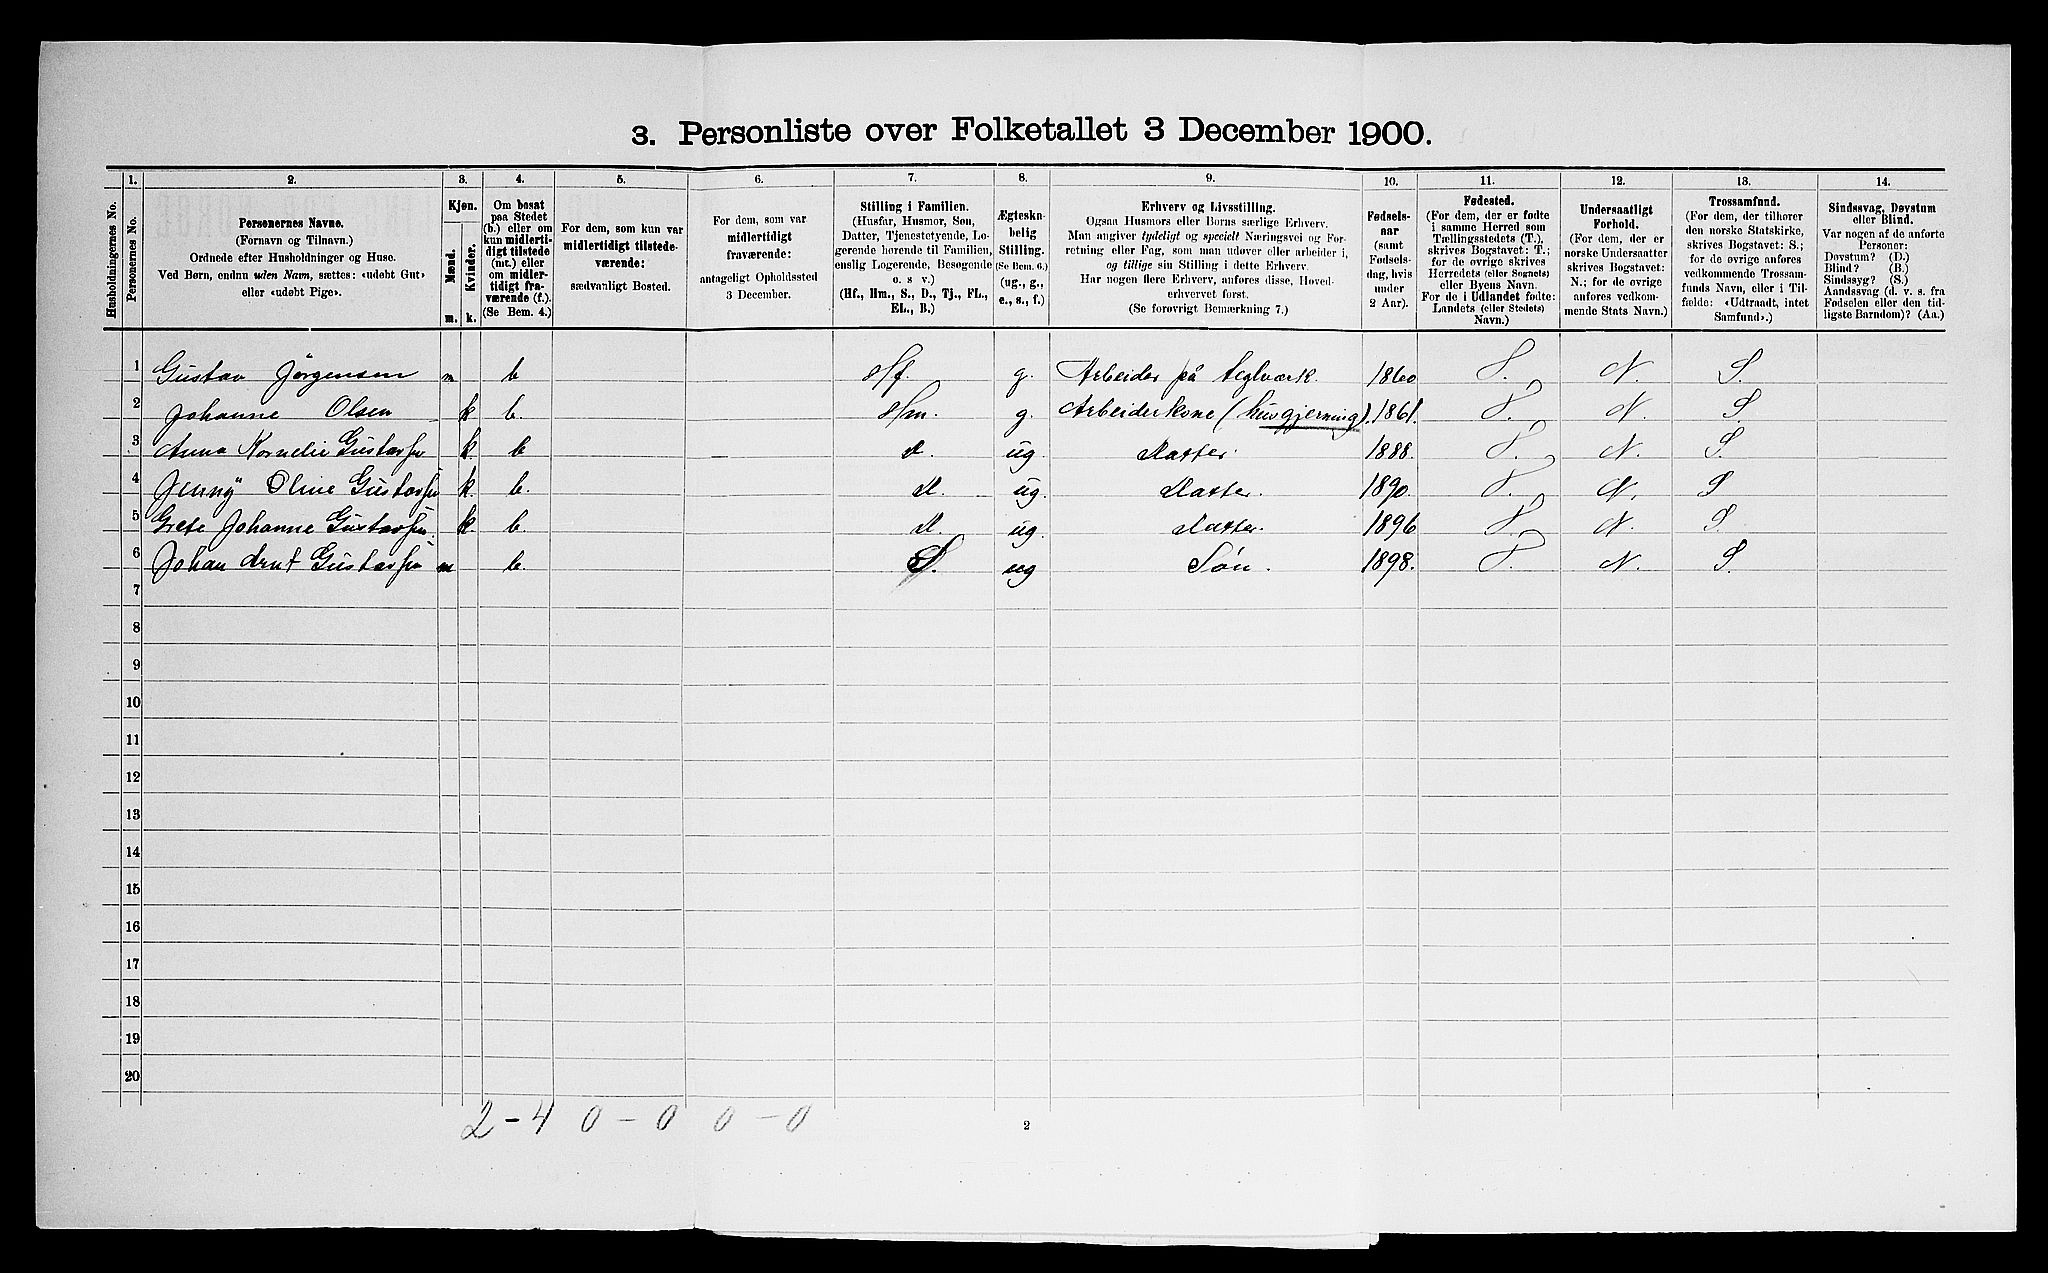 3. Personliste over Folketallet 3 December 1900.
1. 2. 3. 4. 5. 6. 7. 8. 9. 10. 11. 12. 13. 14.
Husholdningernes No.
Personernes No.
Personernes Navne.
(Fornavn og Tilnavn.)
Ordnede efter Husholdninger og Huse.
Ved Børn, endnu uden Navn, sættes: «udøbt Gut»
eller «udøbt Pige».
Kjøn.
Mænd.
Kvinder.
m. k.
Om bosat
paa Stedet
(b.) eller om
kun midlerti-
digt tilstede
(mt.) eller
om midler-
tidigt fra-
værende (f.).
(Se Bem. 4.)
For dem, som kun var
midlertidigt tilstede-
værende:
sædvanligt Bosted.
For dem, som var
midlertidigt
fraværende:
antageligt Opholdssted
3 December.
Stilling i Familien.
(Husfar, Husmor, Søn,
Datter, Tjenestetyende, Lo-
gerende hørende til Familien,
enslig Logerende, Besøgende
o. s v.)
(Hf., Hm., S., D., Tj., FL.,
EL., B.)
Ægteska-
belig
Stilling.
(Se Bem. 6.)
(ug., g.,
e., s., f.)
Erhverv og Livsstilling.
Ogsaa Husmors eller Børns særlige Erhverv.
Man angiver tydeligt og specielt Næringsvei og For-
retning eller Fag, som man udøver eller arbeider i,
og tillige sin Stilling i dette Erhverv.
Har nogen flere Erhverv, anføres disse, Hoved-
erhvervet først.
(Se forøvrigt Bemærkning 7.)
Fødsels-
aar
(samt
Fødsels-
dag, hvis
under
2 Aar).
Fødested.
(For dem, der er fødte
i samme Herred som
Tællingsstedets (T.),
skrives Bogstavet: T.;
for de øvrige skrives
Herredets (eller Sognets)
eller Byens Navn.
For de i Udlandet fødte:
Landets (eller Stedets)
Navn.)
Undersaatligt
Forhold.
(For dem, der er
norske Undersaatter
skrives Bogstavet:
N.; for de øvrige
anføres vedkom-
mende Stats Navn.)
Trossamfund.
(For dem, der tilhører
den norske Statskirke,
skrives Bogstavet: S.;
for de øvrige anføres
vedkommende Trossam-
funds Navn, eller i Til-
fælde: «Udtraadt, intet
Samfund».)
Sindssvag, Døvstum
eller Blind.
Var nogen af de anførte
Personer:
Døvstum? (D.)
Blind? (B.)
Sindssyg? (S.)
Aandssvag (d. v. s. fra
Fødselen eller den tid-
ligste Barndom)? (Aa.)
1 Gustav Jørgensen m b Hf. g. Arbeider på Teglværk. 1860 T. N. S.
2 Johanne Olsen k b. Hm. g. Arbeiderkone (husgjerning). 1861. T. N. S.
3 Anna Kornelie Gustavsen k. b D. ug. Datter. 1888. T. N. S.
4 Jenny Oline Gustavsen k. b. D. ug. Datter. 1890. T. N. S
5 Grete Johanne Gustavsen. k. b D. ug. Datter. 1896 T. N. S.
6 Johan Arnt Gustavsen m b. S. ug Søn. 1898. T. N. S.
7
8
9
10
11
12
13
14
15
16
17
18
19
20
2 - 4 0 - 0 0 - 0
2